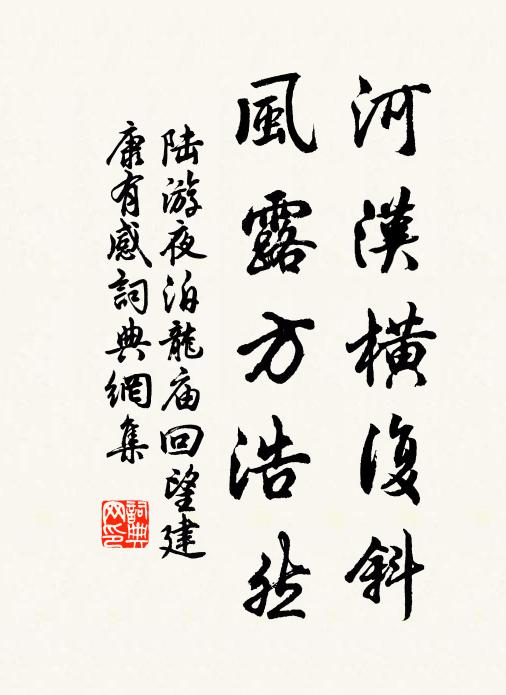 河漢橫復斜
風露方浩然
陆游夜泊龍庙回望建
康有感詞典網集
詞典
网印